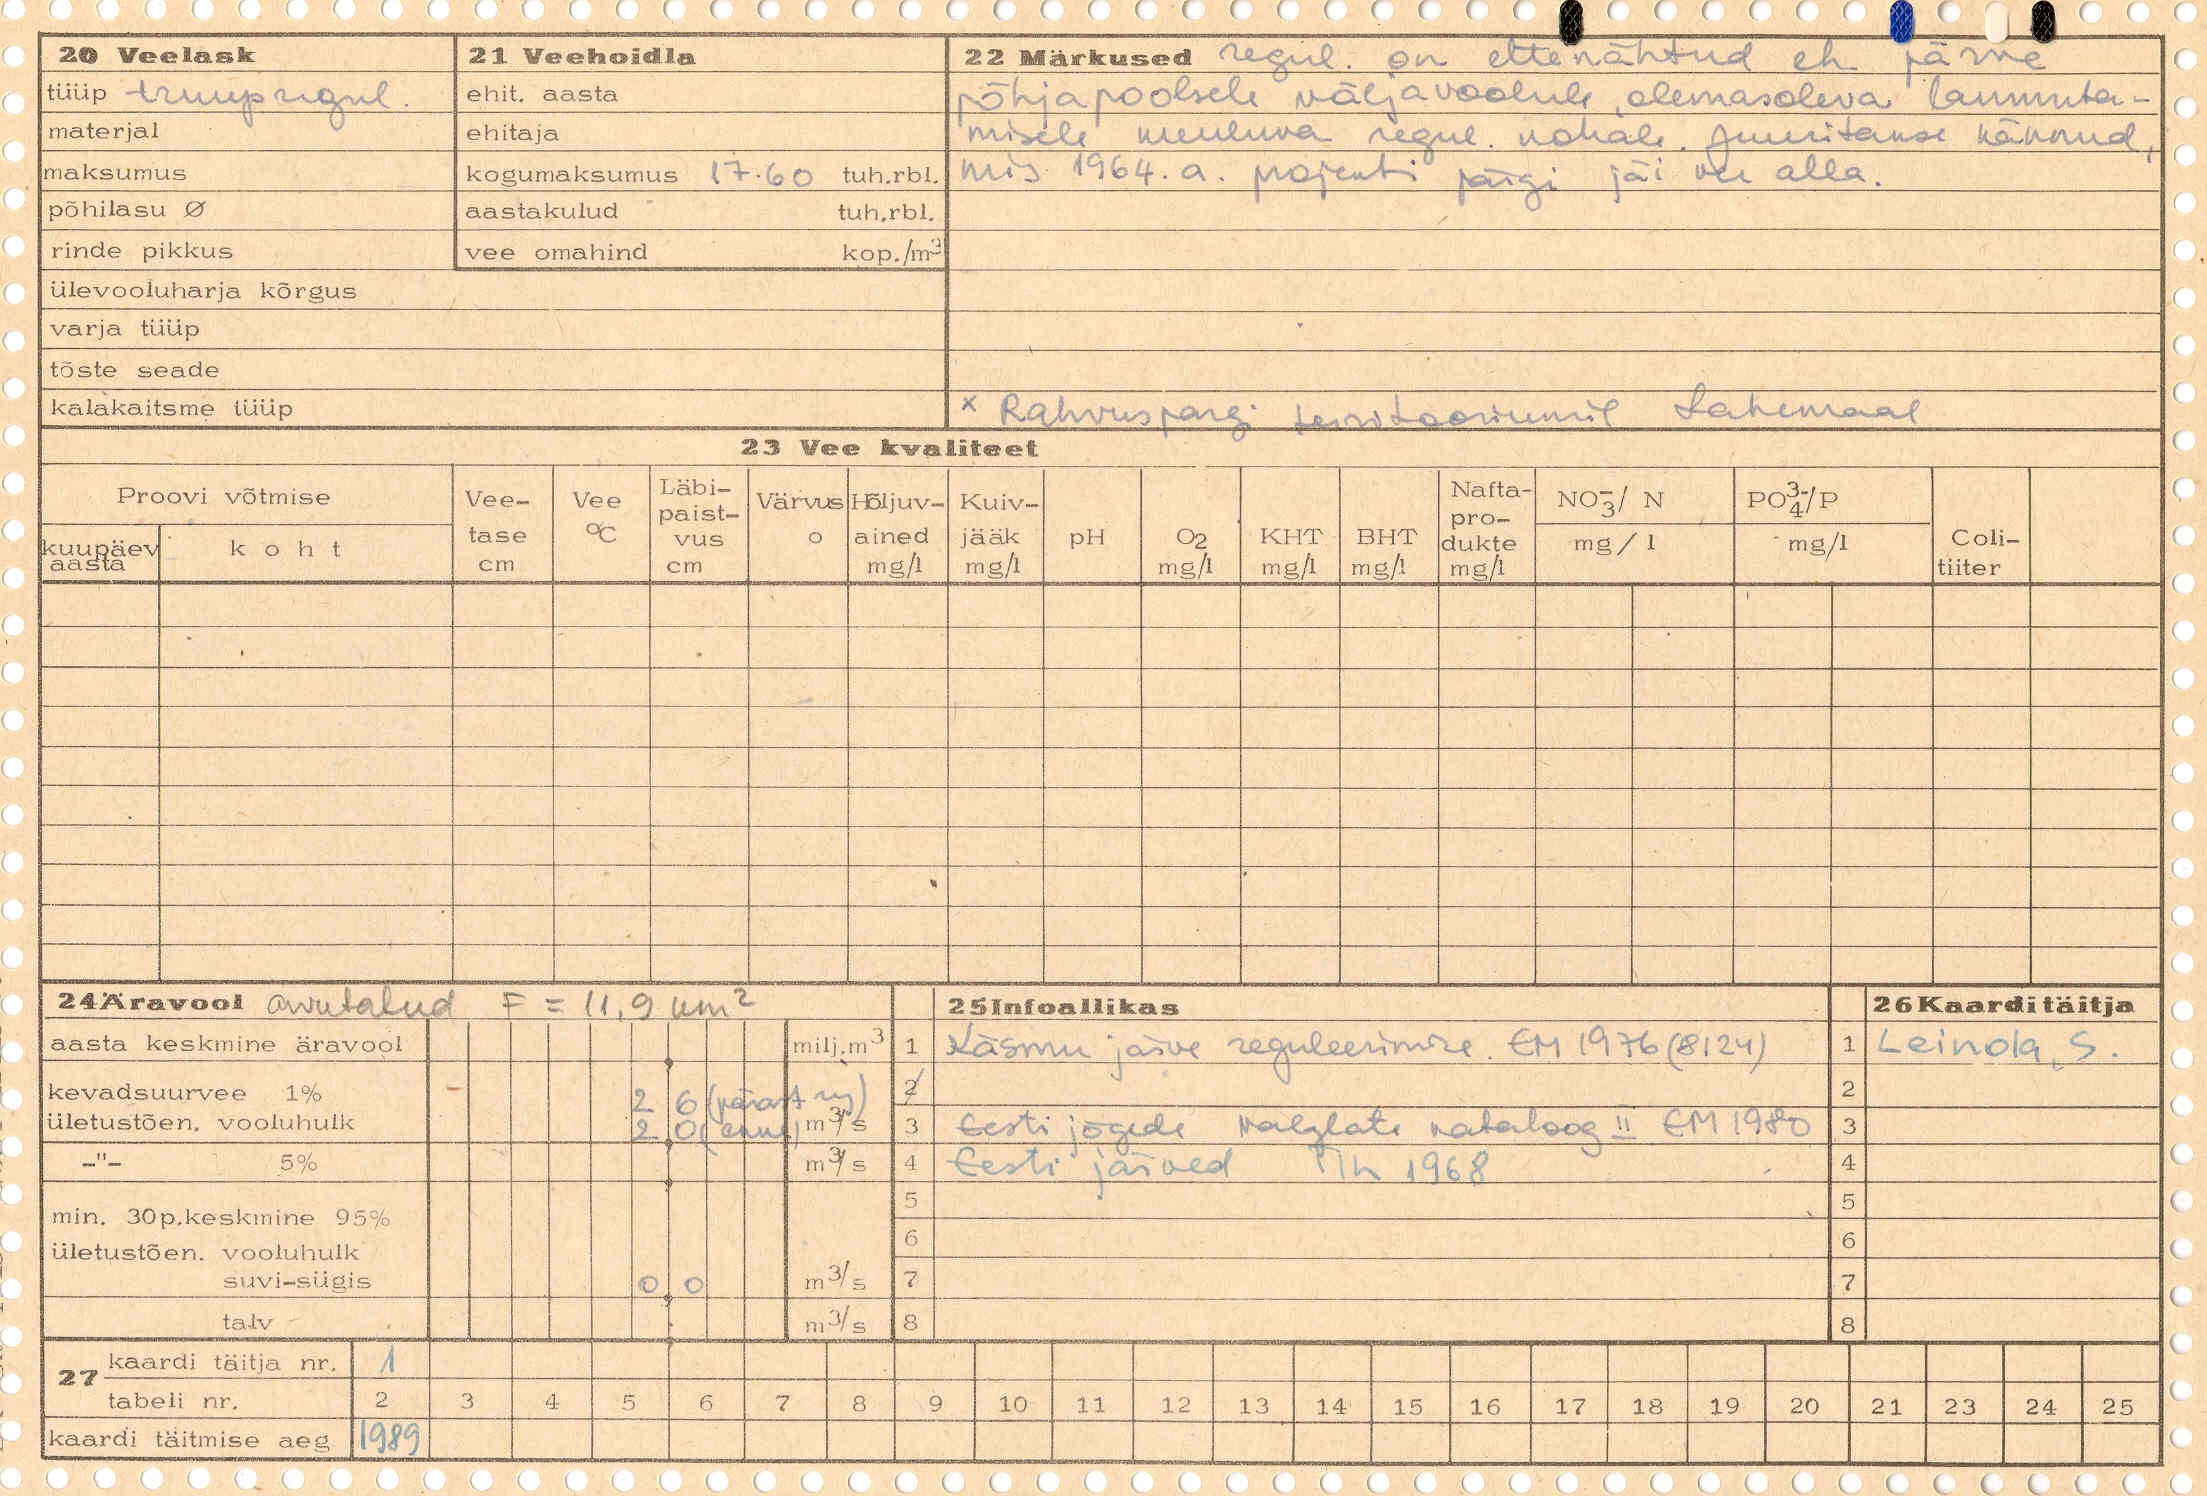 20 Veelask
tüüp truupregul.
materjal
maksumus
põhilasu Ø
rinde pikkus
ülevooluharja kõrgus
varja tüüp
tõste seade
kalakaitsme tüüp
21 Veehoidla
ehit. aasta
ehitaja
kogumaksumus 17.60 tuh.rbl.
aastakulud tuh.rbl.
vee omahind kop./m³
22 Märkused regul. on ettenähtud eh järve
põhjapoolsele väljavoolule, olemasoleva lammuta-
misele kuuluva regul. kohale. Juuritakse kännud,
mis 1964. a. projekti järgi jäi vee alla.
x Rahvuspargi territooriumil Lahemaal
23 Vee kvaliteet
Proovi võtmise
kuupäev aasta
koht
Vee-tase cm
Vee °C
Läbi-paist-vus cm
Värvus o
Hõljuv-ained mg/l
Kuiv-jääk mg/l
pH
O2 mg/l
KHT mg/l
BHT mg/l
Nafta-pro-dukte mg/l
NO₃⁻/ N mg/l
PO₄³⁻/P mg/l
Coli-tiiter
24 Äravool arvutatud F = 11,9 km²
aasta keskmine äravool milj.m³
kevadsuurvee 1% 2 6 (pärast reg)
ületustõen. vooluhulk 2 0 (enne) m³/s
-"- 5% m³/s
min. 30p.keskmine 95%
ületustõen. vooluhulk
suvi-sügis 0 0 m³/s
talv m³/s
25 Infoallikas
1 Käsmu järve reguleerimine. EM 1976 (8124)
2
3 Eesti jõgede valglate kataloog II EM 1980
4 Eesti järved Tln 1968
5
6
7
8
26 Kaarditäitja
1 Leinola, S.
2
3
4
5
6
7
8
27 kaardi täitja nr. 1
tabeli nr. 2 3 4 5 6 7 8 9 10 11 12 13 14 15 16 17 18 19 20 21 23 24 25
kaardi täitmise aeg 1989